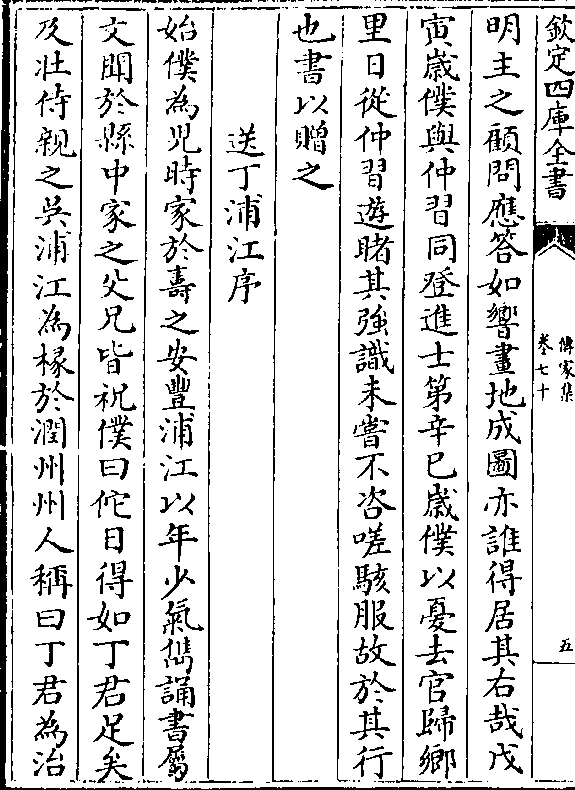 欽定四庫全書
傳家集
卷七十
五
明主之顧問應答如響畫地成圖亦誰得居其右哉戊
寅嵗僕與仲習同登進士第辛巳嵗僕以憂去官歸鄉
里日從仲習遊睹其強識未嘗不咨嗟駭服故於其行
也書以贈之
送丁浦江序
始僕為兒時家於壽之安豐浦江以年少氣雋誦書屬
文聞於縣中家之父兄皆祝僕曰佗日得如丁君足矣
及壯侍親之吳浦江為掾於潤州州人稱曰丁君為治